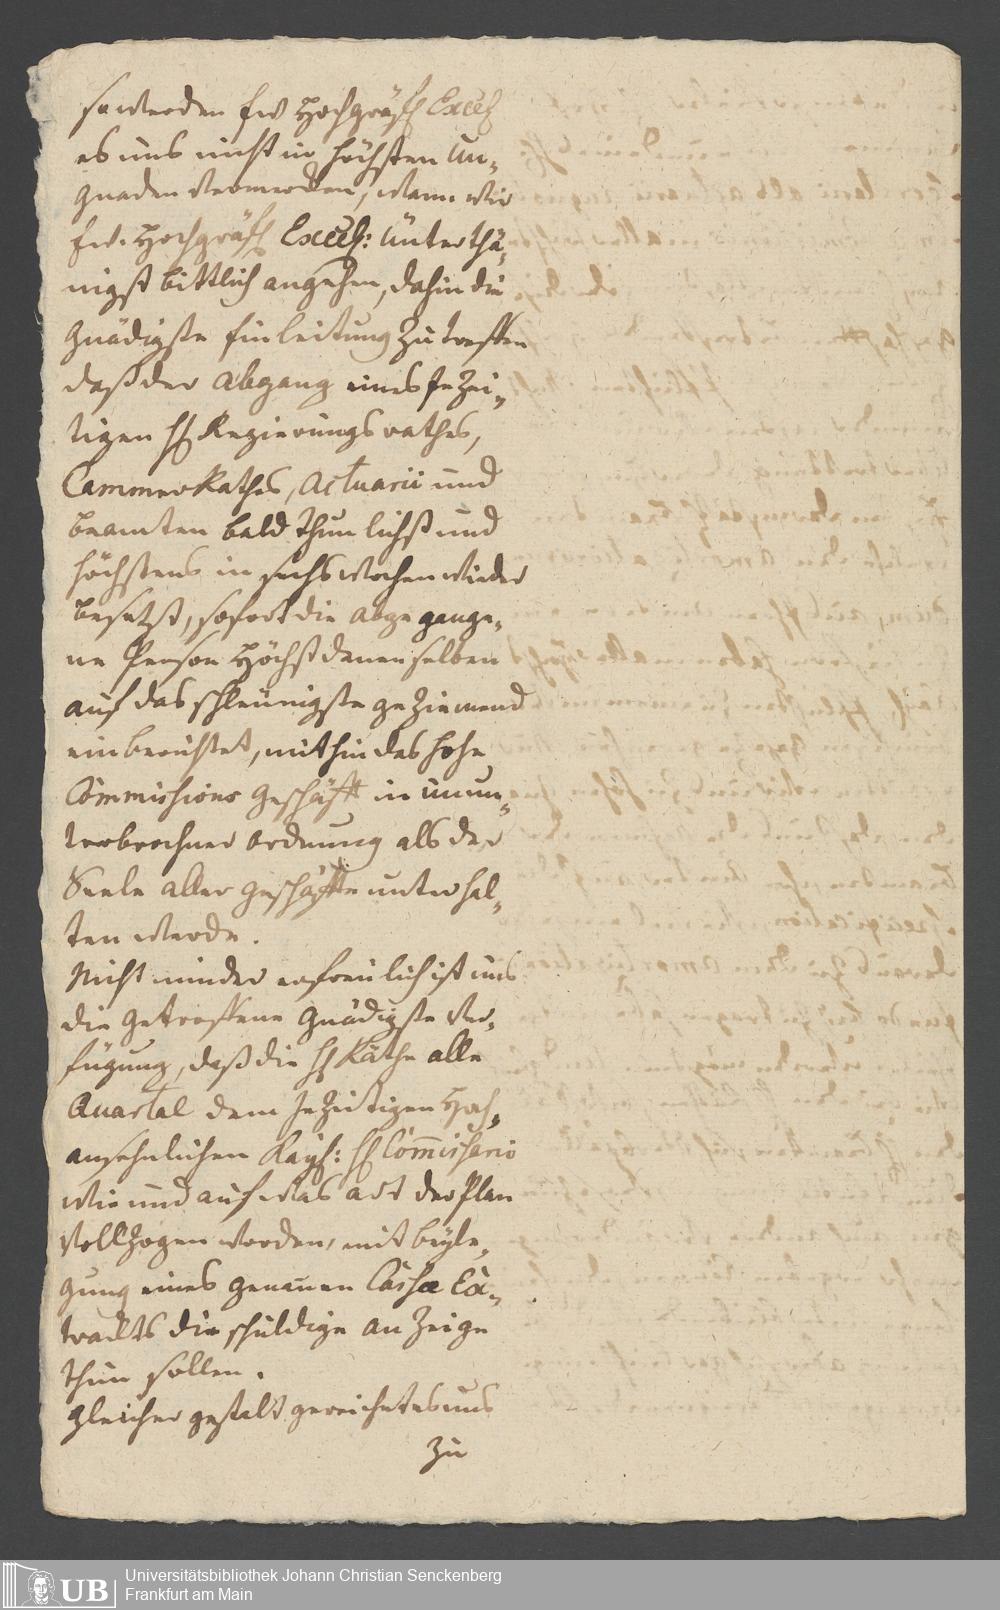 so werden Ew Hochgräfl Excell
es uns nicht in höchsten Un-
gnaden vermercken, wann wir
Ew. Hochgräfl Excell: Unterthä-
nigst bittlich angehen, dahin die
gnädigste Einleitung zu treffen
daß der abgang eines jezei-
tigen H Regierungs rathes,
Cammer Rathes, Actuarii und
beamten bald thunlichst und
höchstens in sechs wochen wieder
besetzt, sofort die abgegange-
ne Person Höchst denenselben
auf das schleunigste geziemend
einberichtet, mithin das hohe
Commissions geschäfft in unun-
terbrochner ordnung als der
Seele aller geschäffte unterhal-
ten werde.
Nicht minder erfreulich ist uns
die getroffene gnädigste Ver-
fügung, daß die H Räthe alle
Quartal dem jezeitigen Hoch-
ansehnlichen Kayß: H Commissario
wie und auf was art der Plan
vollzogen worden, mit beyle-
gung eines genauen Cassæ Ex-
tracts die schuldige anzeige
thun sollen.
gleicher gestalt gereichet es uns
zu
UB
Universitätsbibliothek Johann Christian Senckenberg
Frankfurt am Main